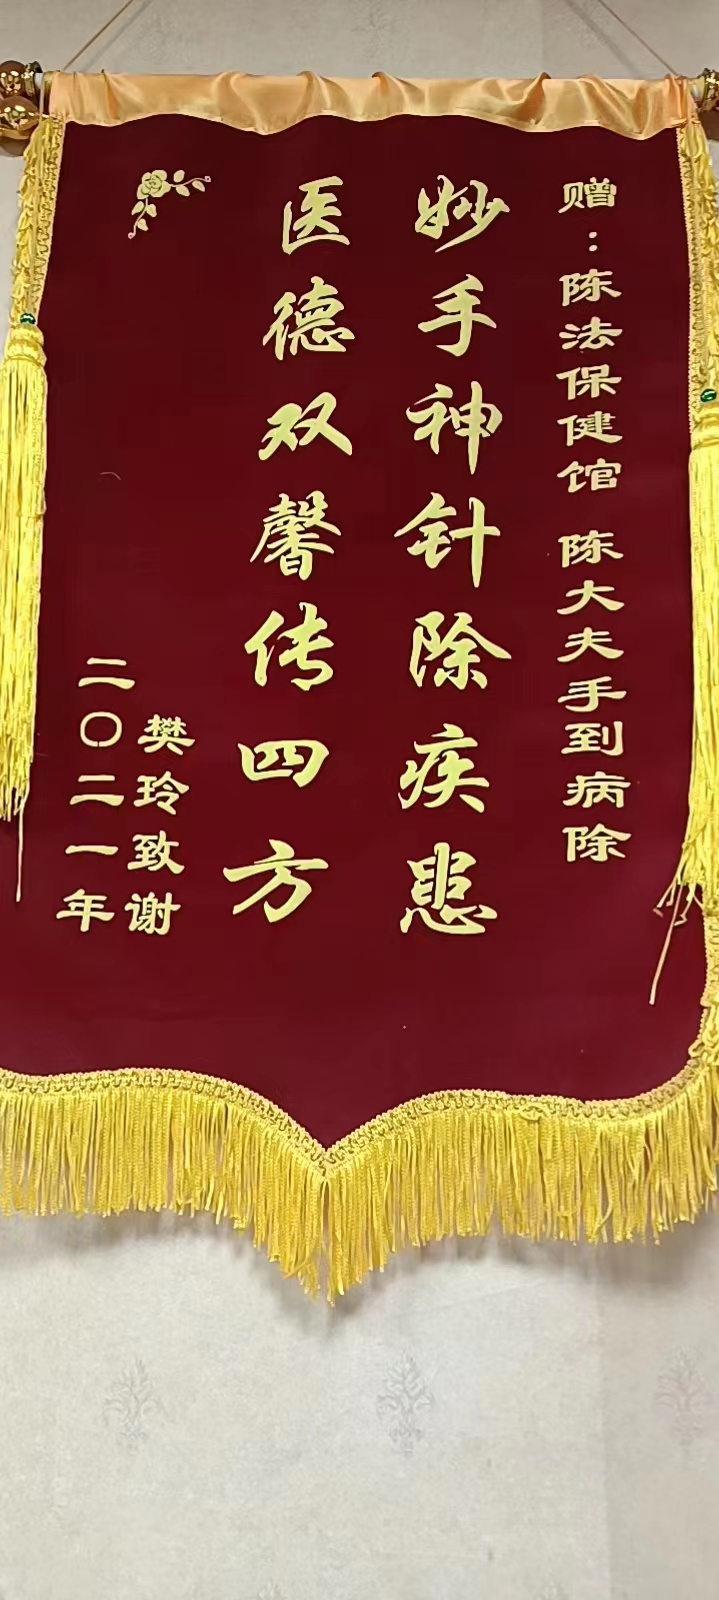 赠：陈法保健馆 陈大夫手到病除
妙手神针除疾患
医德双馨传四方
樊玲致谢
二〇二一年